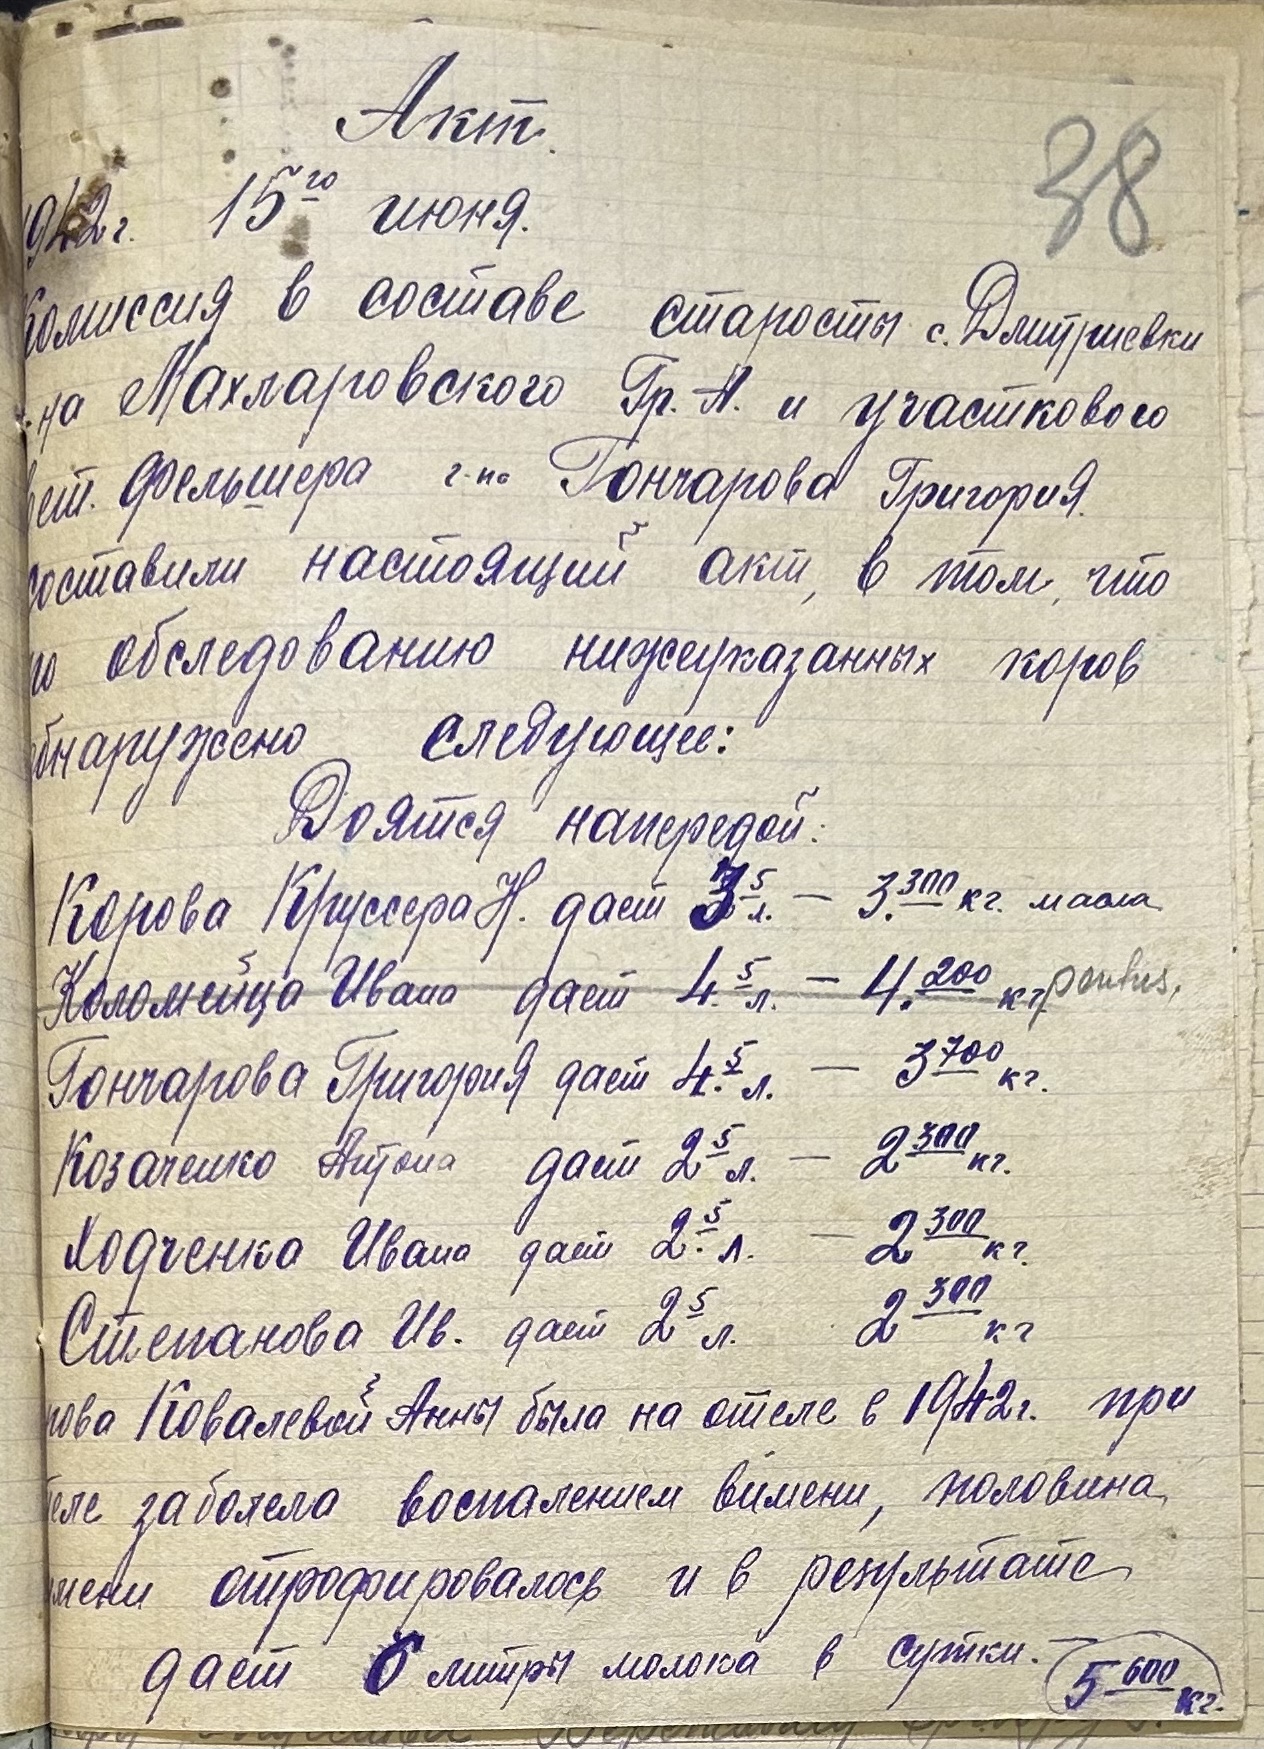 Акт.
38
1942 г. 15го июня.
Комиссия в составе старосты с. Дмитриевки
г-на Махларовского Гр. А. и участкового
вет. фельшера г-на Гончарова Григория
составили настоящий акт, в том, что
по обследованию нижеуказанных коров
обнаружено следующее:
Доятся напередой:
Корова Круссера Н. дает 3.5 л. — 3.300 кг. масла
Коломейца Ивана дает 4.5 л. — 4.200 кг.
Гончарова Григория дает 4.5 л. — 3 700 кг.
Козаченко Антона дает 2 5 л. — 2 300 кг.
Ходченка Ивана дает 2.5 л. — 2 300 кг.
Степанова Ив. дает 2 5 л. 2 300 кг
рова Ковалевой Анны была на отеле в 1942 г. при
теле заболела воспалением вимени, половина
мени отрофировалось и в результате
дает 6 литры молока в сутки. — 5 600 кг.